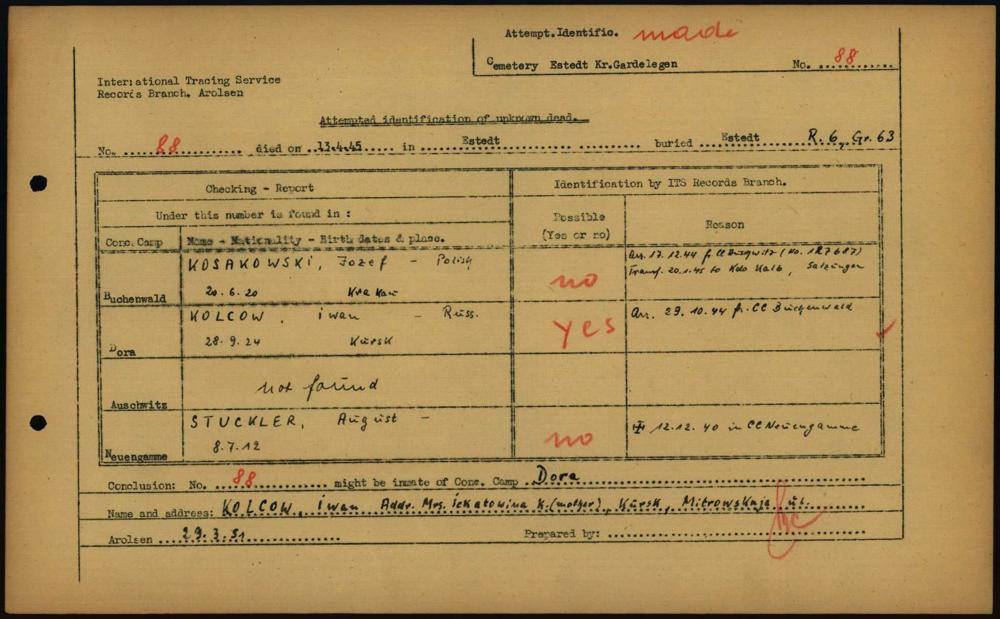 Attempt.Identific. made
Cemetery Estedt Kr.Gardelegen No. 88
International Tracing Service
Records Branch. Arolsen
Attempted identification of unknown dead.
No. 88 died on 13.4.45 in Estedt buried Estedt R. 6, Gr. 63
Checking - Report
Identification by ITS Records Branch.
Under this number is found in :
Possible (Yes or no)
Reason
Conc. Camp
Name - Nationality - Birth dates & place.
KOSAKOWSKI, Jozef - Polish
20.6.20 Krakau
Buchenwald
no
Arr. 17.12.44 fr. CC (No. 127687)
Transf. 20.1.45 to Kdo Kalb, Salzungen
KOLCOW, iwan - Russ.
28.9.24 Kursk
Dora
yes
Arr. 29.10.44 fr. CC Buchenwald
not found
Auschwitz
STUCKLER, August -
8.7.12
Neuengamme
no
12.12.40 in CC Neuengamme
Conclusion: No. 88 might be inmate of Conc. Camp Dora
Name and address: KOLCOW, iwan Addr. Mrs. K. (mother), Kursk, Mitrowskaja ul.
Arolsen 29.3.51 Prepared by: